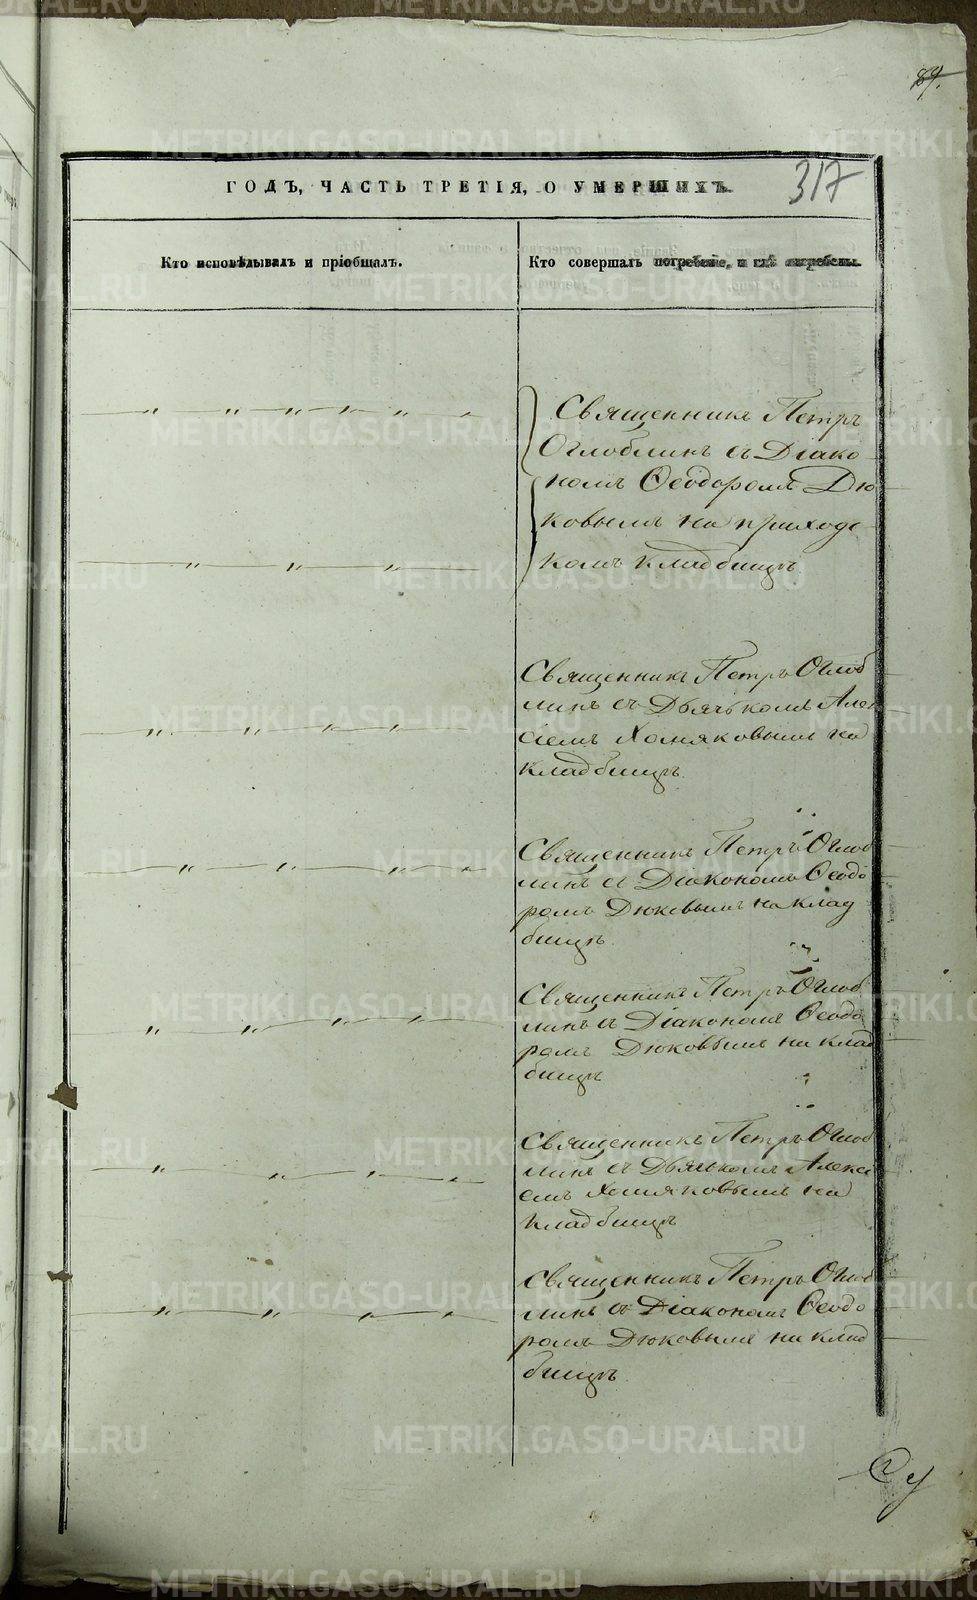 89.
317
ГОДЪ, ЧАСТЬ ТРЕТІЯ, О УМЕРШИХЪ.
Кто исповѣдывалъ и пріобщалъ.
Кто совершалъ погребеніе, и гдѣ погребены.
Священникъ Петръ
Оглоблинъ съ Діако
номъ Ѳеодоромъ Дю
ковымъ на приходс
комъ кладбищѣ
Священникъ Петръ Оглоб
линъ съ Дьячькомъ Алек
сіемъ Хомяковымъ на
кладбищѣ.
Священникъ Петръ Оглоб
линъ съ Діакономъ Ѳеодо
ромъ Дюковымъ на клад
бищѣ.
Священникъ Петръ Оглоб
линъ съ Діакономъ Ѳеодо
ромъ Дюковымъ на клад
бищѣ
Священникъ Петръ Оглоб
линъ съ Дьячькомъ Алексі
емъ Хомяковымъ на
кладбищѣ
Священникъ Петръ Оглоб
линъ съ Діакономъ Ѳеодо
ромъ Дюковымъ на клад
бищѣ.
METRIKI.GASO-URAL.RU